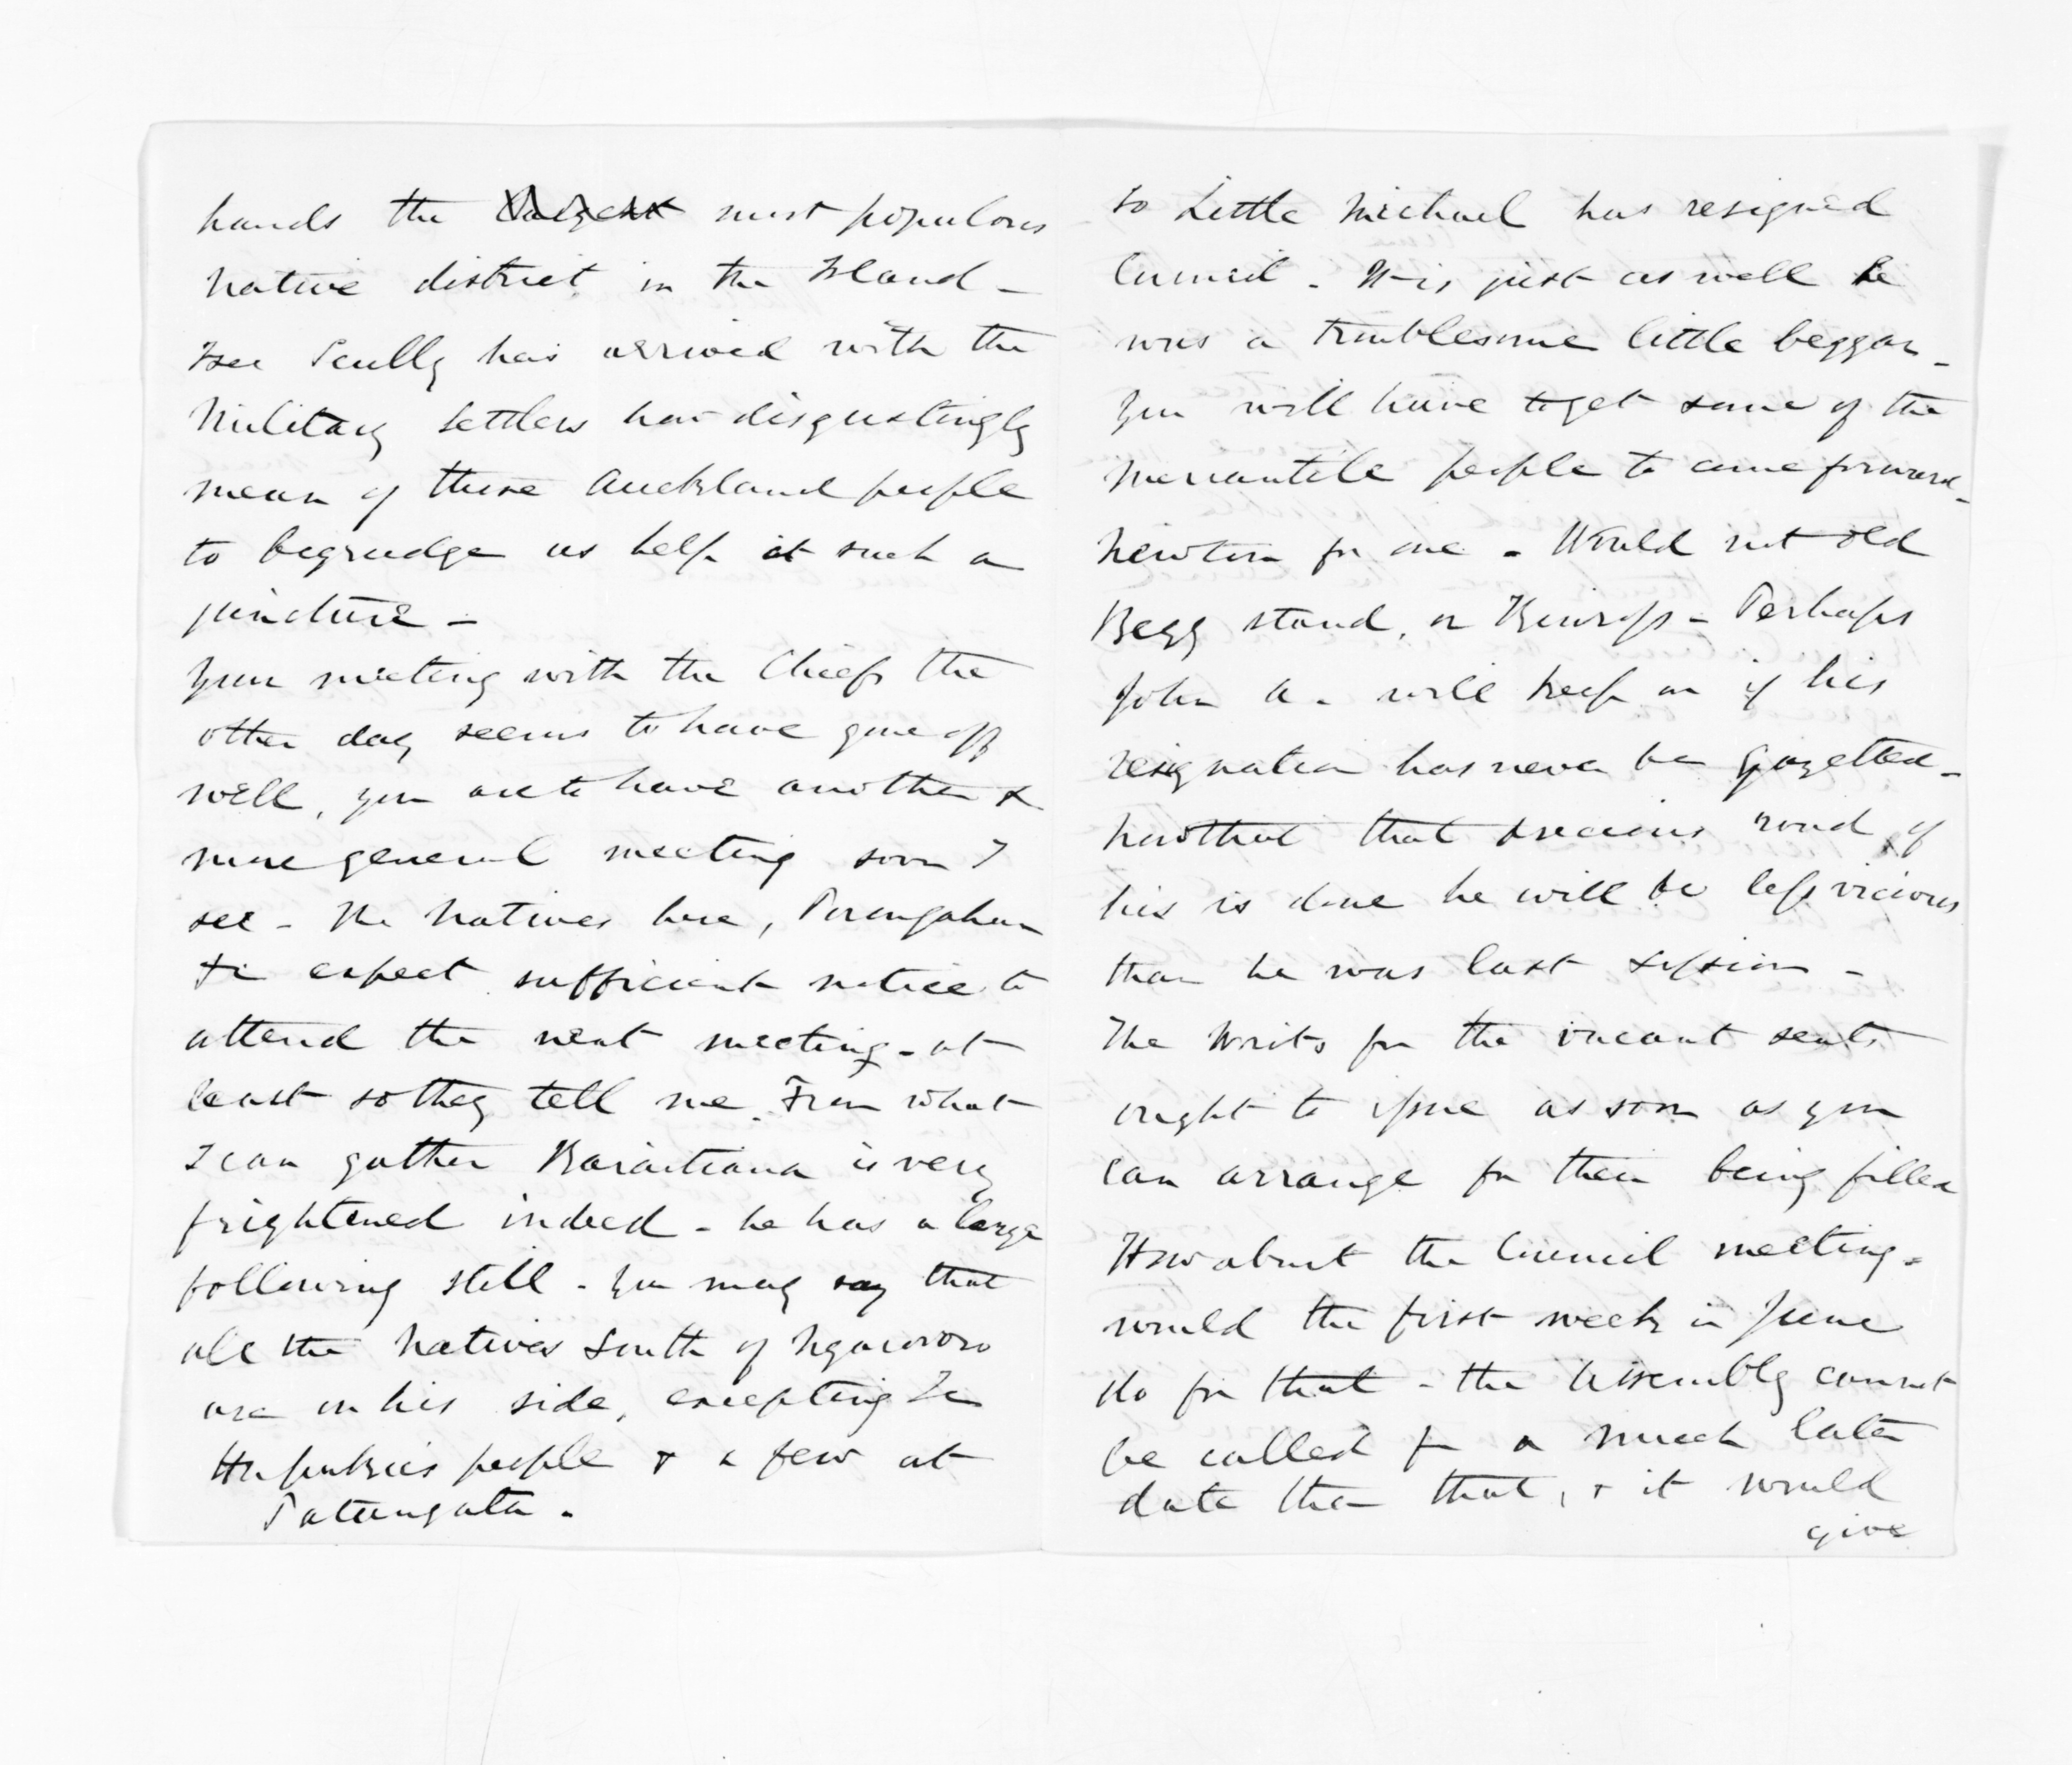 hands the largest most populous
native district in the Island -
I see Scully has arrived with the
Military Settlers how disgustingly
mean of those Auckland people
to begrudge us help at such a
juncture -
Your meeting with the Chiefs the
other day seems to have gone off
well, you are to have another &
more general meeting soon I
see - The Natives here, Porangahau
&c expect sufficient notice to
attend the next meeting - at
least so they tell me. From what
I can gather Karaitiana is very
frightened indeed - he has a large
following still - You may say that
all the Natives South of Ngaruroro
are on his side, excepting Te
Hapuku's people & a few at
Patangata.
So Little Michael has resigned
Council - It is just as well he
was a troublesome little beggar -
You will have to get some of the
Mercantile people to come forward -
Newton for one - Would not old
Begg stand, or Kinross - Perhaps
John A. will keep on if his
resignation has never be Gazetted -
now that that precious road of
his is done he will be less vicious
than he was last session -
The Writs for the vacant seats
ought to issue as soon as you
can arrange for their being filled
How about the Council meeting -
would the first week in June
do for that - the Assembly cannot
be called for a much later
date than that, & it would
give